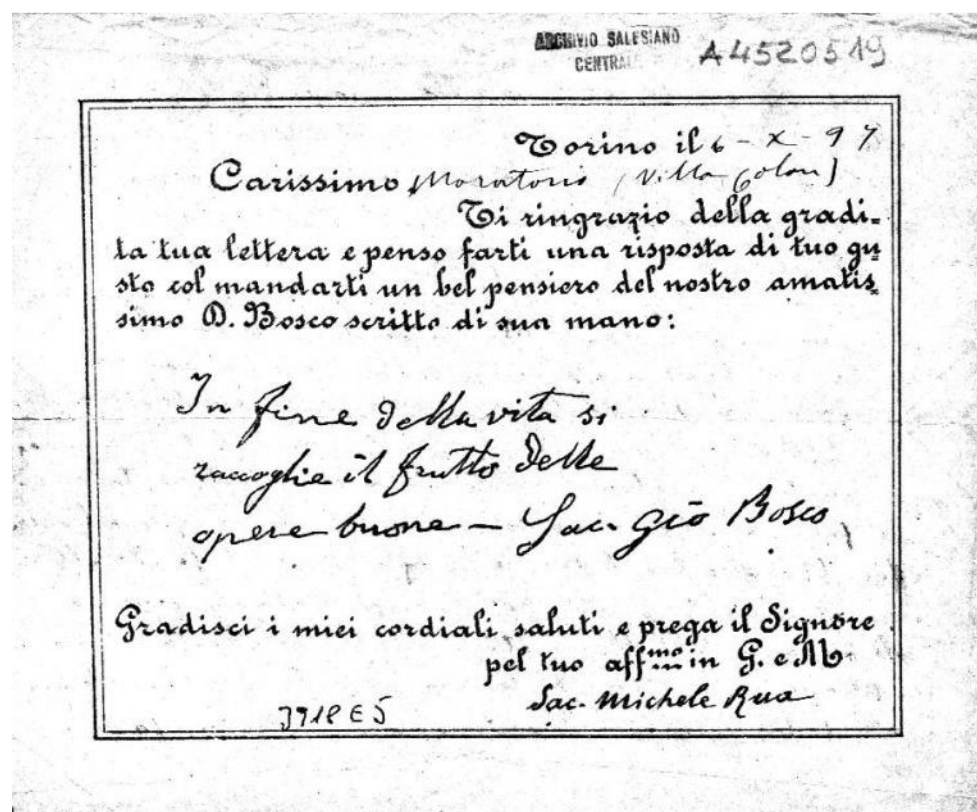 ARCHIVIO SALESIANO
CENTRALE
A4520519
Torino il 6 - X - 97
Carissimo Moratorio (Villa Colon)
Ti ringrazio della gradi-
ta tua lettera e penso farti una risposta di tuo gu-
sto col mandarti un bel pensiero del nostro amatis-
simo D. Bosco scritto di sua mano:
In fine della vita si
raccoglie il frutto delle
opere buone - Sac. Gio Bosco
Gradisci i miei cordiali saluti e prega il Signore
pel tuo aff.mo in G. e M.
Sac. Michele Rua
3918 E 5